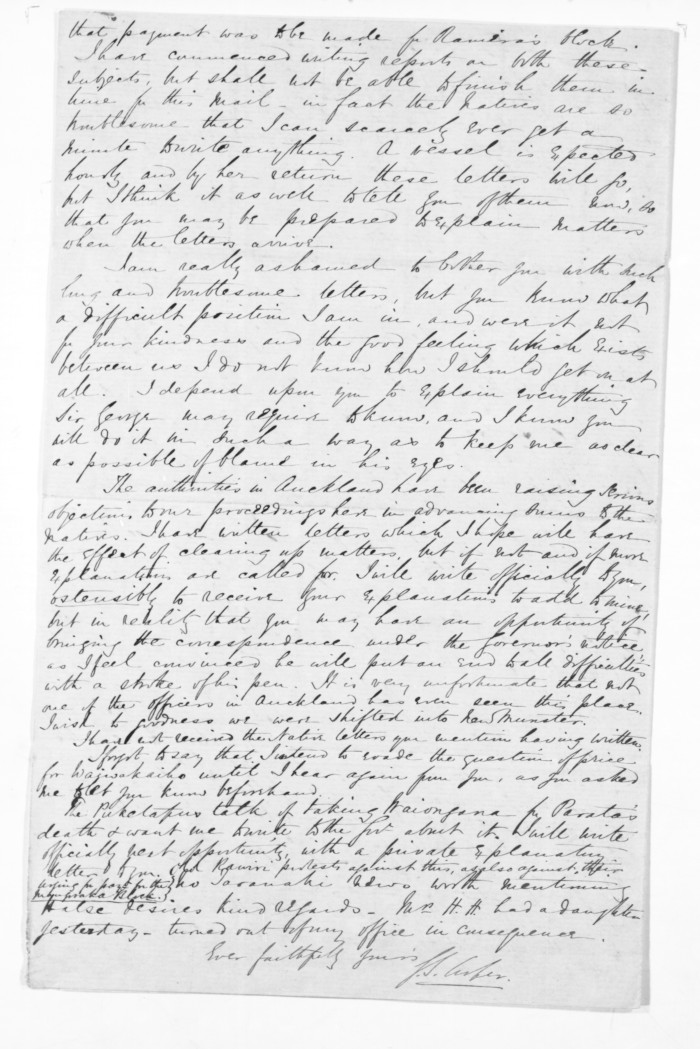 that payment was to be made for Raniera's block.
I have commenced writing reports on both these
subjects, but shall not be able to finish them in
time for this mail - in fact the Natives are so
troublesome that I can scarcely ever get a
minute to write anything. A vessel is expected
hourly and by her return these letters will go,
but I think it as well to tell you of them now, so
that you may be prepared to explain matters
when the letters arrive.
I am really ashamed to bother you with such
long and troublesome letters, but you know what
a difficult position I am in, and were it not
for your kindness and the good feeling which exists
between us I do not know how I should get on at
all. I depend upon you to explain everything
Sir George may require to know, and I know you
will do it in such a way as to keep me as clear
as possible of blame in his eyes.
The authorities in Auckland have been raising serious
objections to our proceedings here in advancing to the
Natives. I have written letters which I hope will have
the effect of clearing up matters, but if not and if more
explanations are called for. I will write officially to you,
ostensibly to receive your explanations to add to mine,
but in reality that you may have an opportunity of
bringing the correspondence under the Governor's notice,
as I feel convinced he will put an end to all difficulties
with a stroke of his pen. It is very unfortunate that not
one of the officers in Auckland has ever seen this place.
I wish to goodness we were shifted into New Munster.
I have not received the Native letters you mention having written.
I forgot to say that I intend to evade the question of price
for Waiwakaiho until I hear again from you, as you asked
me to let you know beforehand.
The Puketapus talk of taking Waiongana for Parata's
death & want me to write to the Govt about it. I will write
officially next opportunity, with a private explanatory
letter to you. (And Rawiri protests against this, as also against their
asking for part for the
Block.)
no Taranaki news worth mentioning
Halse desires kind regards - Mrs H. H. had a daughter
yesterday - turned out of my office in consequence.
Ever faithfully yours